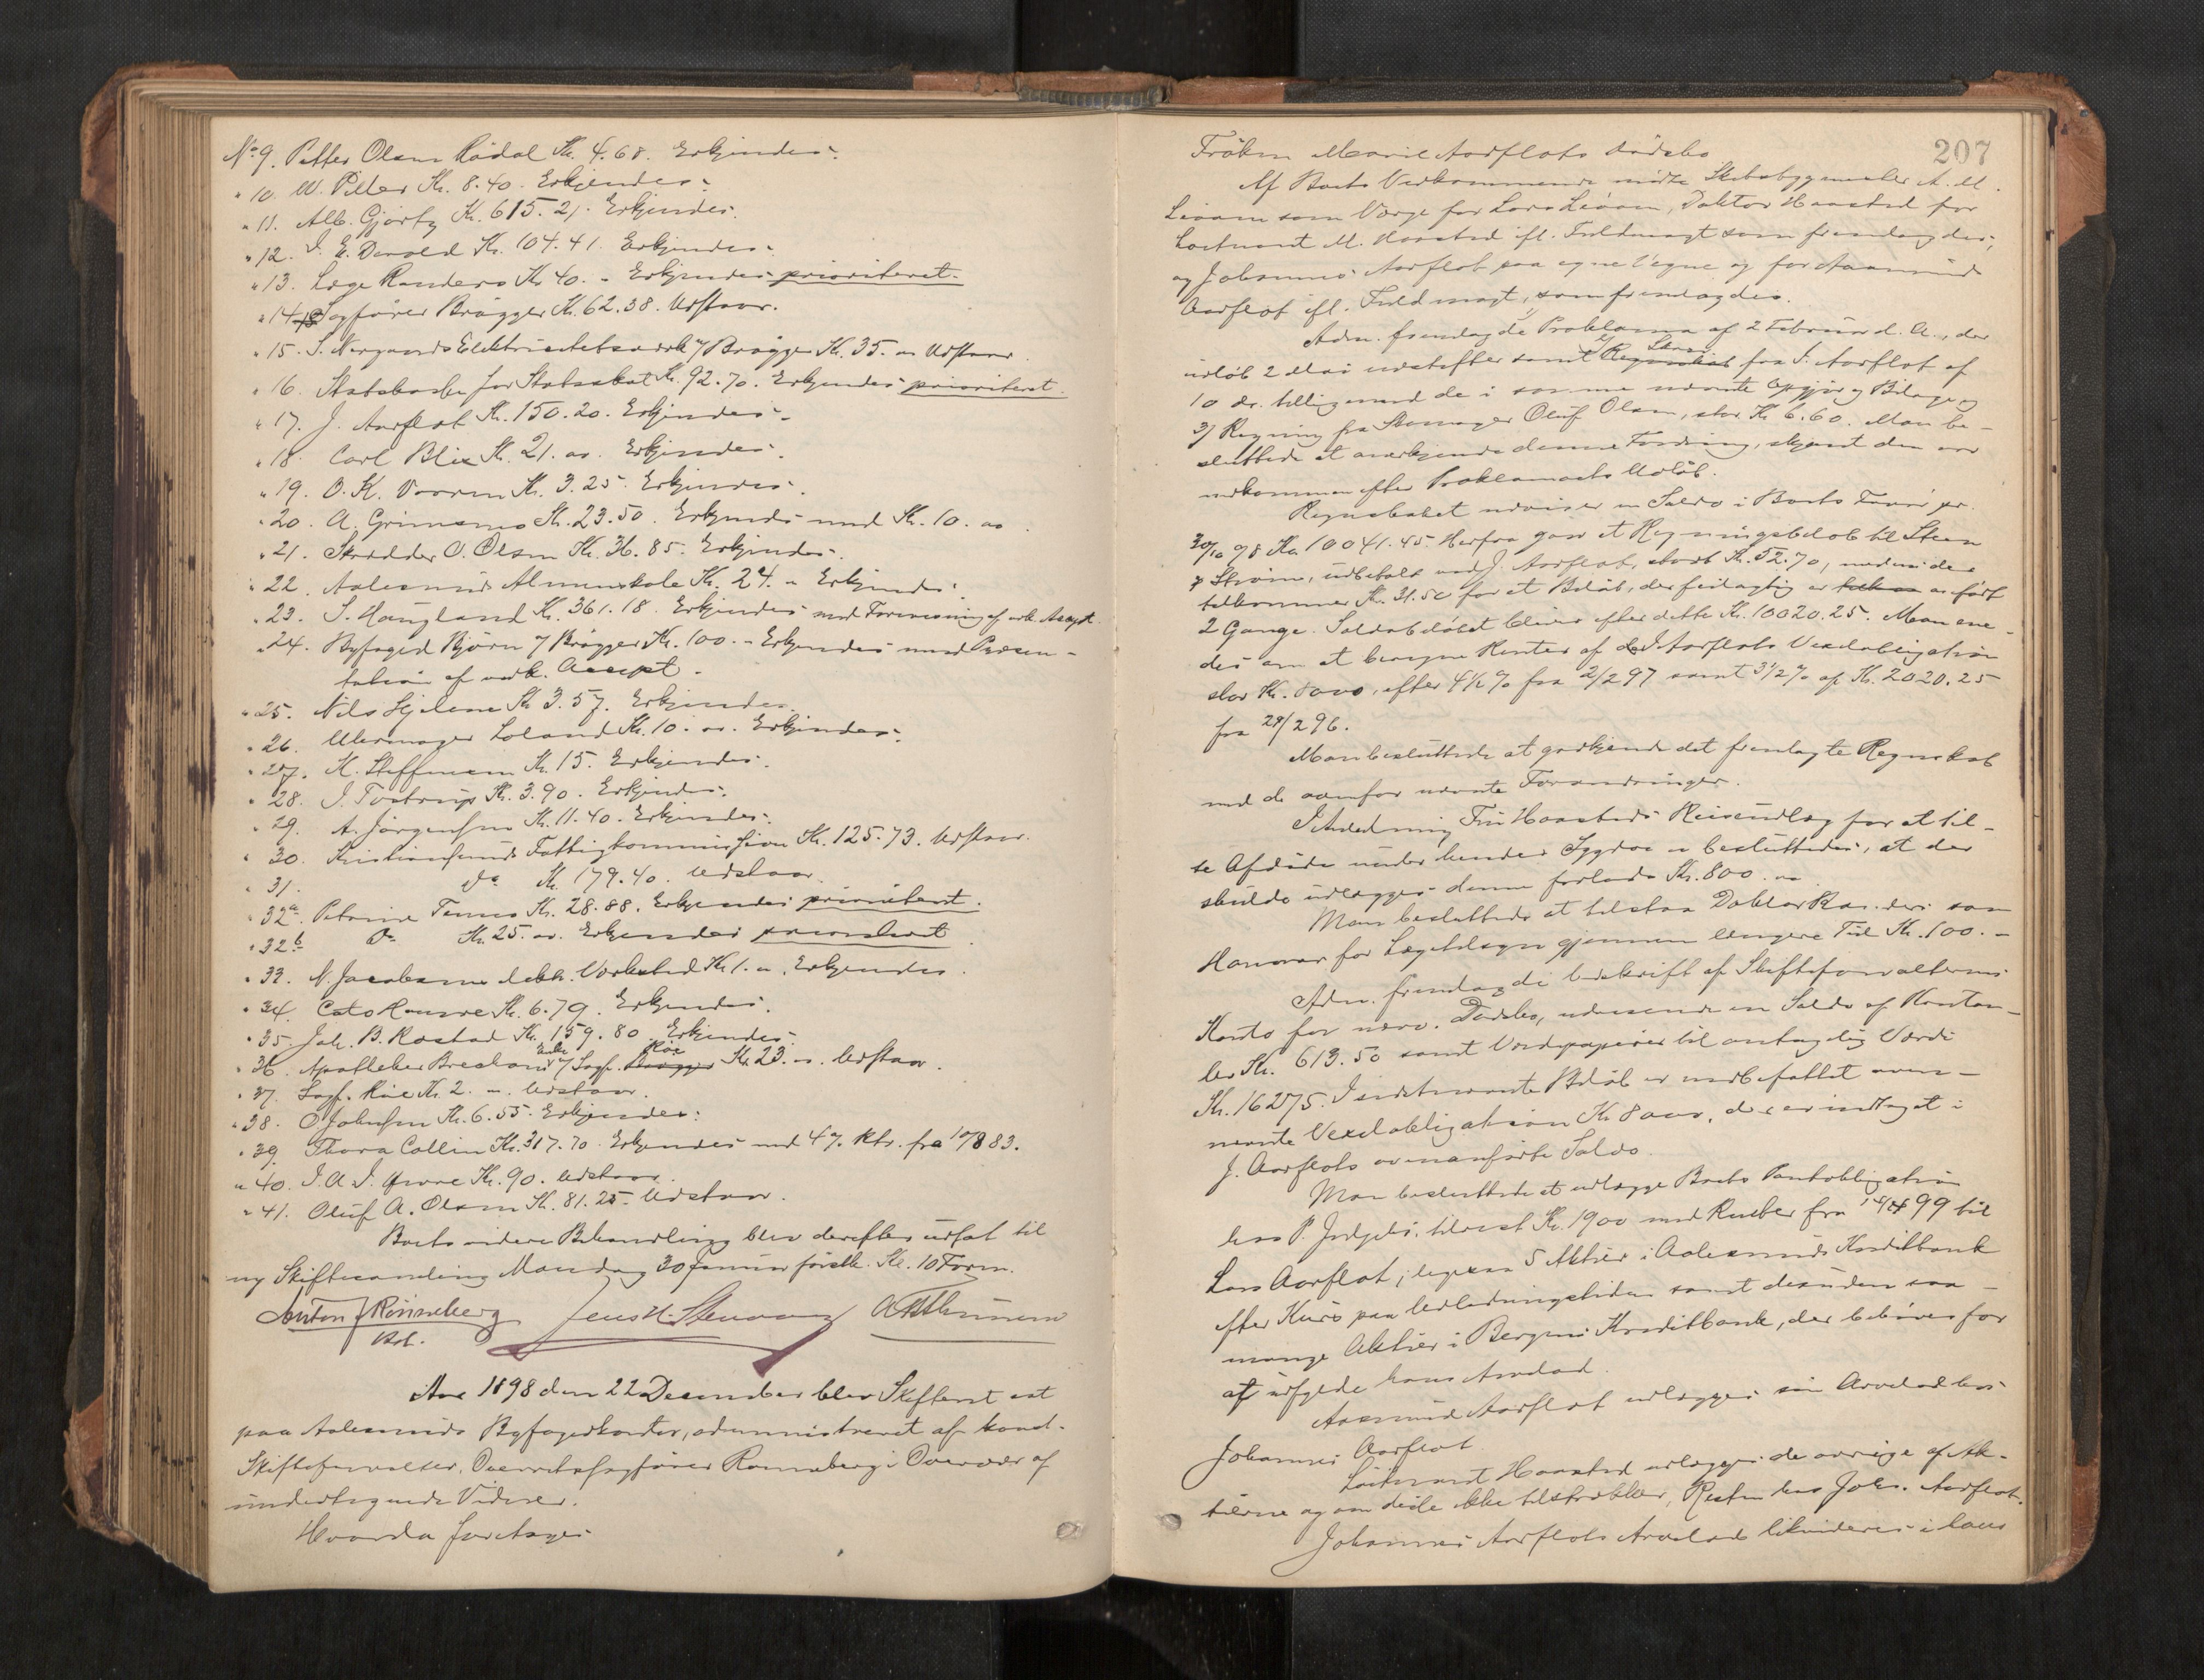 No 9. Petter Olsen Rødal Kr. 4.68. Erkjendes.
" 10. W. Piller Kr. 8.40. Erkjendes.
" 11. Alb. Gjørtz Kr. 615.21. Erkjendes.
" 12. I. E. Devold Kr. 104.41. Erkjendes.
" 13. Læge Randers Kr. 40. - Erkjendes prioriteret.
" 14. Sagfører Brøgger Kr. 62.38. Udstaar.
" 15. S. Nergaards Elektricitetsverk / Brøgger Kr. 35. - Udstaar.
" 16. Statskassen for Statsskat Kr. 92.70. Erkjendes prioriteret.
" 17. J. Aarflot Kr. 150.20. Erkjendes.
" 18. Carl Blix Kr. 21. - Erkjendes.
" 19. O. K. Kr. 3.25. Erkjendes.
" 20. A. Grimsmo Kr. 23.50. Erkjendes med Kr. 10. -
" 21. Skrædder O. Olsen Kr. 36.85. Erkjendes.
" 22. Aalesunds Almenskole Kr. 24. - Erkjendes.
" 23. S. Haugland Kr. 361.18. Erkjendes mod Forevisning af vedk. Accept.
" 24. Byfoged Bjørn / Brøgger Kr. 100. - Erkjendes mod Præsen-
tation af vedk. Accept.
" 25. Nils Hjelme Kr. 3.57. Erkjendes.
" 26. Uhrmager Loland Kr. 10. - Erkjendes.
" 27. K. Steffensen Kr. 15. Erkjendes.
" 28. I. Tostrup Kr. 3.90. Erkjendes.
" 29. A. Jørgensen Kr. 11.40. Erkjendes.
" 30. Kristiansunds Fattigkommission Kr. 125.73. Udstaar.
" 31. do Kr. 179.40. Udstaar.
" 32a. Petrine Kr. 28.88. Erkjendes prioriteret.
" 32b do Kr. 25. - Erkjendes prioriteret.
" 33. N. Jacobsens elektr. Verksted Kr. 1. - Erkjendes.
" 34. Cato Kr. 6.79. Erkjendes.
" 35. Joh. B. Rostad Kr. 159.80 Erkjendes.
" 36. Apotheker Enke / Sagf. Røe Kr. 23. - Udstaar.
" 37. Sagf. Røe Kr. 2. - Udstaar.
" 38. O Johnsen Kr. 6.55. Erkjendes.
" 39. Thora Collin Kr. 317.70. Erkjendes med 4% Rtr. fra 10/8 83.
" 40. I. A. I. Kr. 90. Udstaar.
" 41. Oluf A. Olsen Kr. 81.25. Udstaar.
Boets videre Behandling blev derefter udsat til
ny Skiftesamling Mandag 30 Januar førstk. Kl. 10 Form.
Anton J Rønneberg Jens H. Stenvaag
kst.
Aar 1898 den 22 December blev Skifteret sat
paa Aalesunds Byfogedkontor, administreret af konst.
Skifteforvalter, Overretssagfører Rønneberg i Overvær af
undertegnede Vidner.
Hvorda foretoges
207
Frøken Marie Aarflots Dødsbo
Af Boets Vedkommende mødte Skibsbygmester A. M.
Liaaen som Værge for Lars Liaaen, Doktor Haasted for
Løitnant M. Haasted ifl. Fuldmagt som fremlagdes,
og Johannes Aarflot paa egne Vegne og for Aasmund
Aarflot ifl. Fuldmagt, som fremlagdes.
Adm. fremlagde 1) Proklama af 2 Februar d. A., der
udløb 2 Mai næstefter samt 2) Skriv fra J. Aarflot af
10 ds. tilligemed de i samme nævnte Opgjør og Bilage og
3) Regning fra Skomager Oluf Olsen, stor Kr. 6.60. Man be-
sluttede at anerkjende denne Fordring, skjønt den var
indkommen efter Proklamaets Udløb.
Regnskabet udviser en Saldo i Boets Favør pr.
20/10 98 Kr. 10041.45. Herfra gaar et Regningsbeløb til Steen
& Strøm, udbetalt ved J. Aarflot, stort Kr. 52.70, medens der
tilkommer Kr. 31.50 for et Beløb, der feilagtig er anført
2 Gange. Saldobeløbet bliver efter dette Kr. 10020.25. Man ene-
des om at beregne Renter af J. Aarflots Vexelobligation
stor Kr. 8000, efter 4½ % fra 2/2 97 samt 3½ % af Kr. 2020.25
fra 29/2 96.
Man besluttede at godkjende det fremlagte Regnskab
med de ovenfor nævnte Forandringer.
I Anledning Fru Haasteds Reiseudlæg for at til-
se Afdøde under hendes Sygdom besluttedes, at der
skulde udlægges denne forlods Kr. 800. -
Man besluttede at tilstaa Doktor Randers som
Honorar for Lægetilsyn gjennem længere Tid Kr. 100. -
Adm. fremlagde Udskrift af Skifteforvalterens
Konto for nærv. Dødsbo, udvisende en Saldo af Kontan-
ter Kr. 613.50 samt Værdipapirer til antagelig Værdi
Kr. 16275. I sidstnævnte Beløb er indbefattet oven-
nævnte Vexelobligation Kr. 8000, der er indtaget i
J. Aarflots ovenanførte Saldo.
Man besluttede at udlægge Boets Pantobligation
hos P. tilrest Kr. 1900 med Renter fra 14/4 99 til
Lars Aarflot; ligesaa 5 Aktier i Aalesunds Kreditbank
efter Kurs paa Udlodningstiden samt desuden saa
mange Aktier i Bergens Kreditbank, der behøves for
at udfylde hans Arvelod.
Aasmund Aarflot udlægges sin Arvelod hos
Johannes Aarflot.
Løitnant Haasted udlægges de øvrige af Ak-
tierne og om disse ikke tilstrækker, Resten hos Johs. Aarflot.
Johannes Aarflots Arvelod likvideres i hans